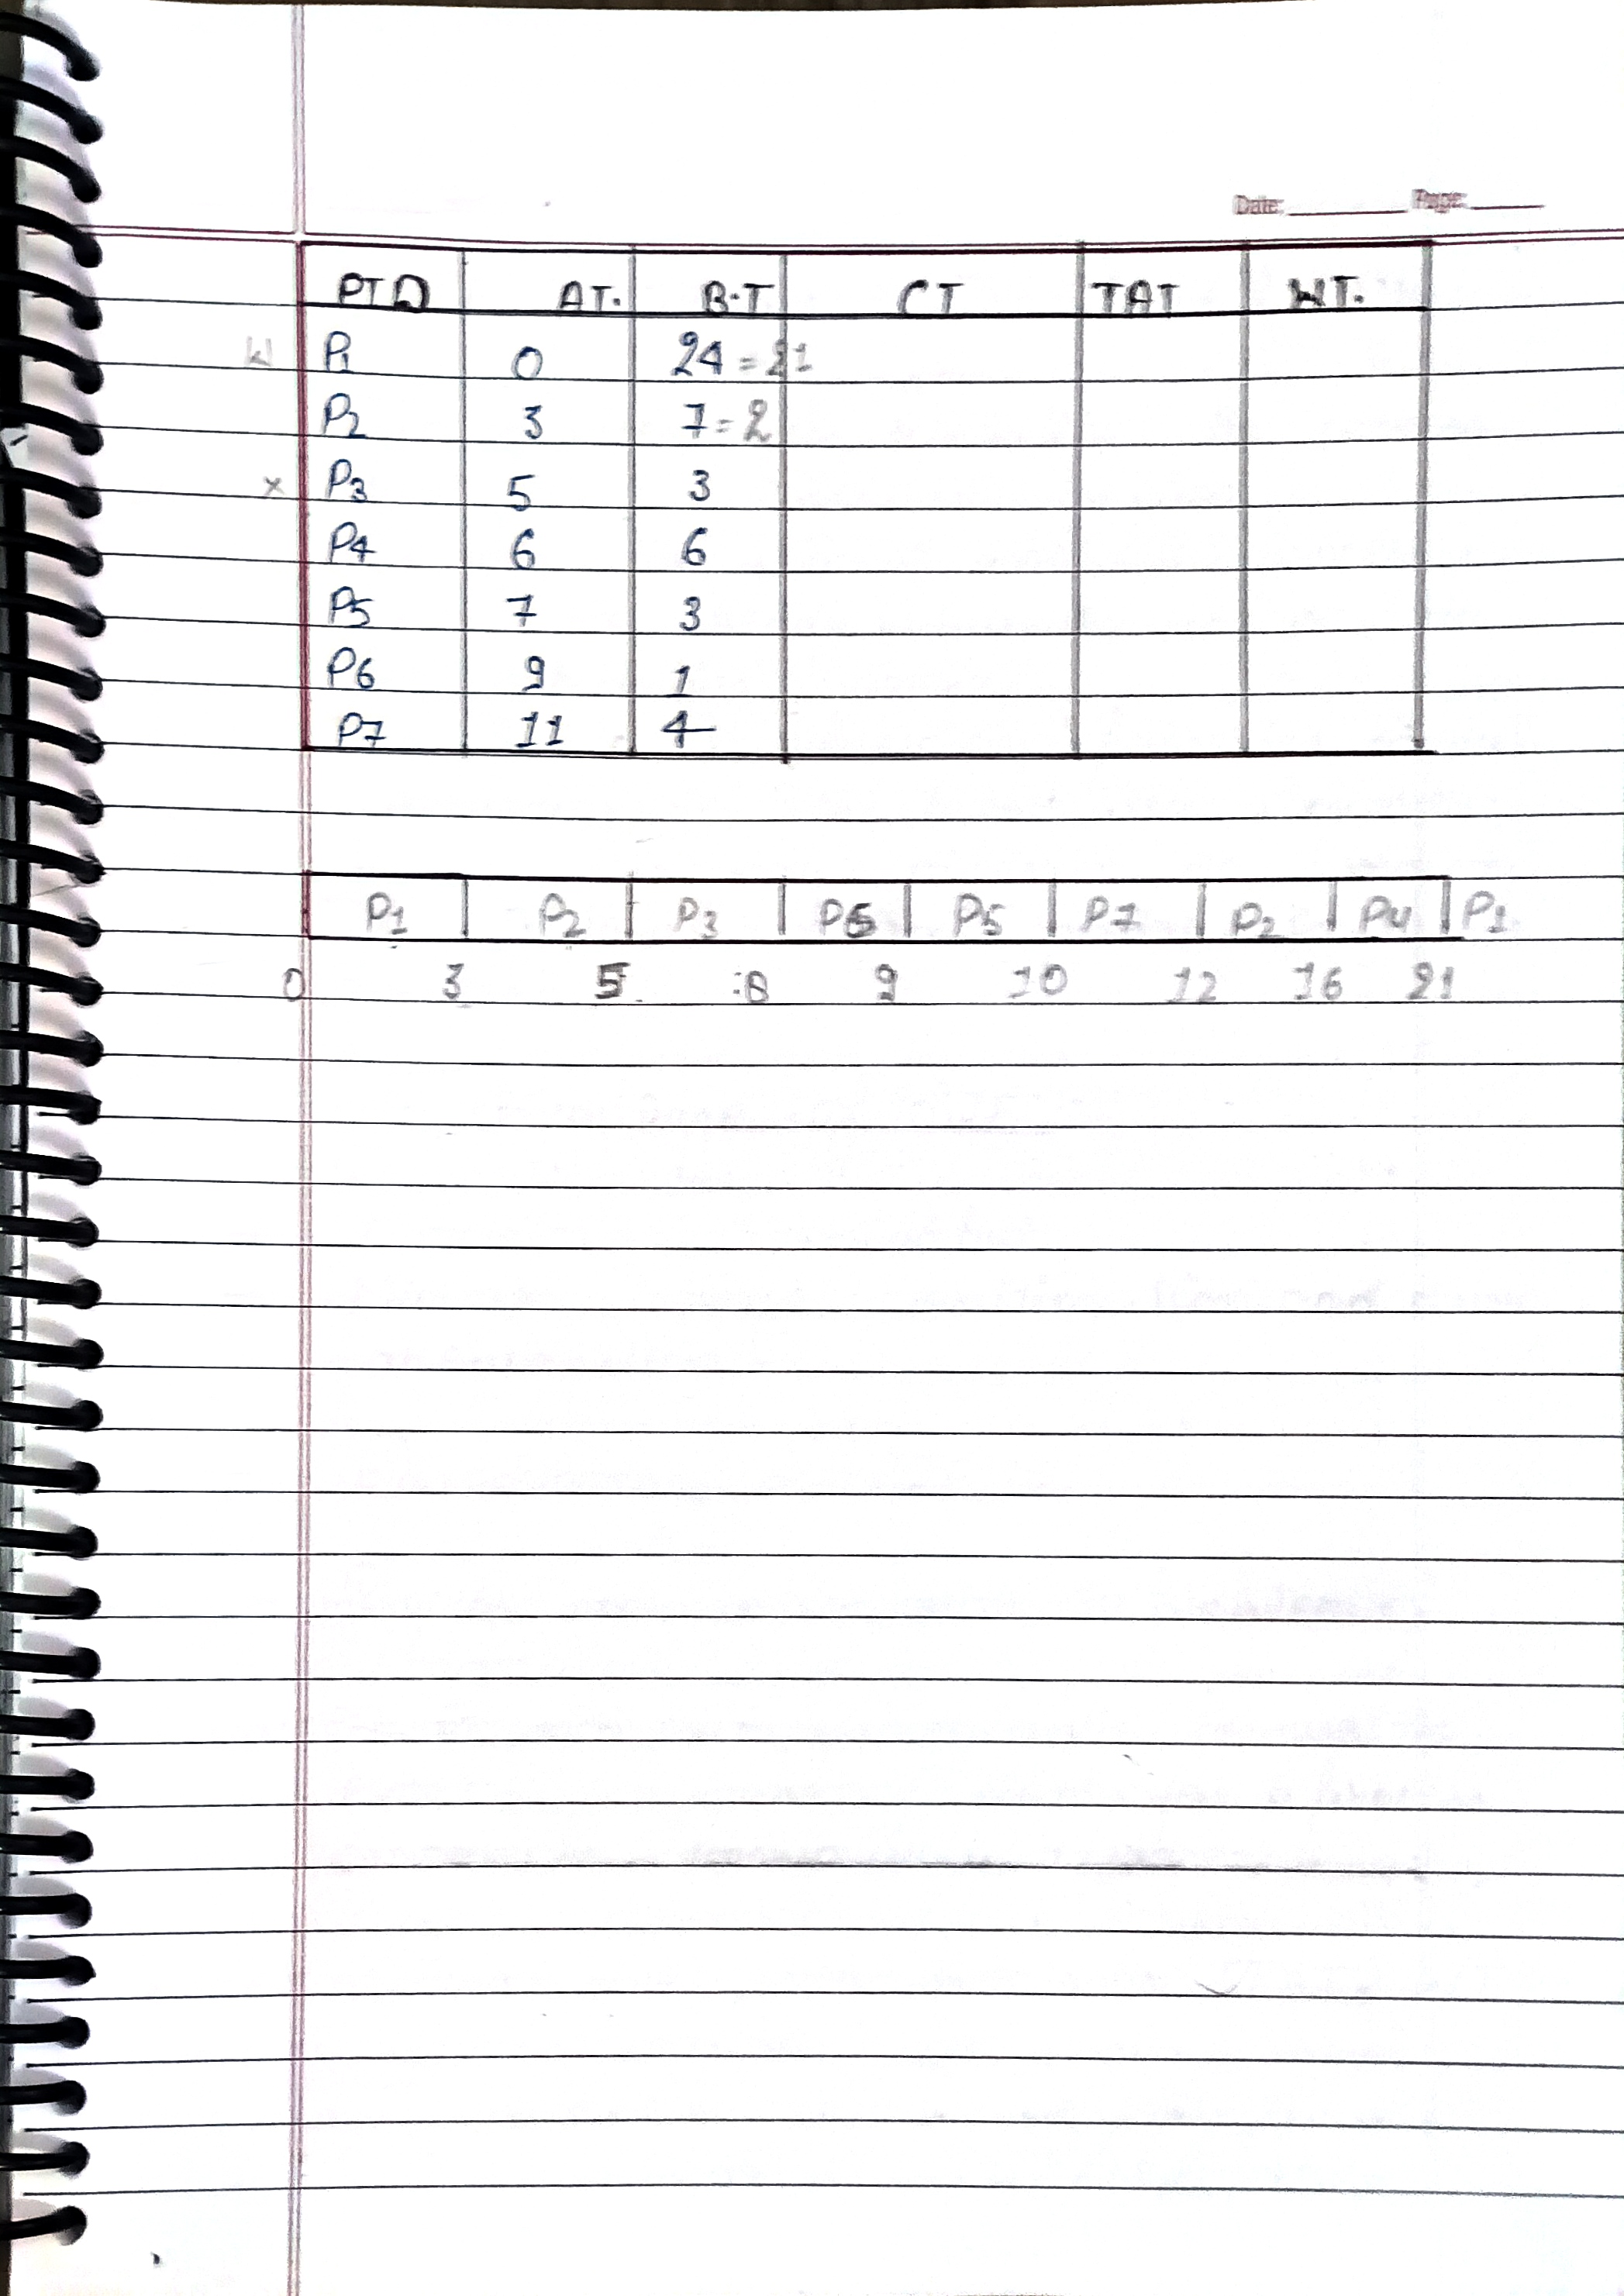 Date: Page:
PID AT. B.T CT TAT WT.
P1 0 24 = 21
P2 3 7 = 2
x P3 5 3
P4 6 6
P5 7 3
P6 9 1
P7 11 4
P1 | P2 | P3 | P6 | P5 | P7 | P2 | P4 | P1
0 3 5 8 9 10 12 16 21